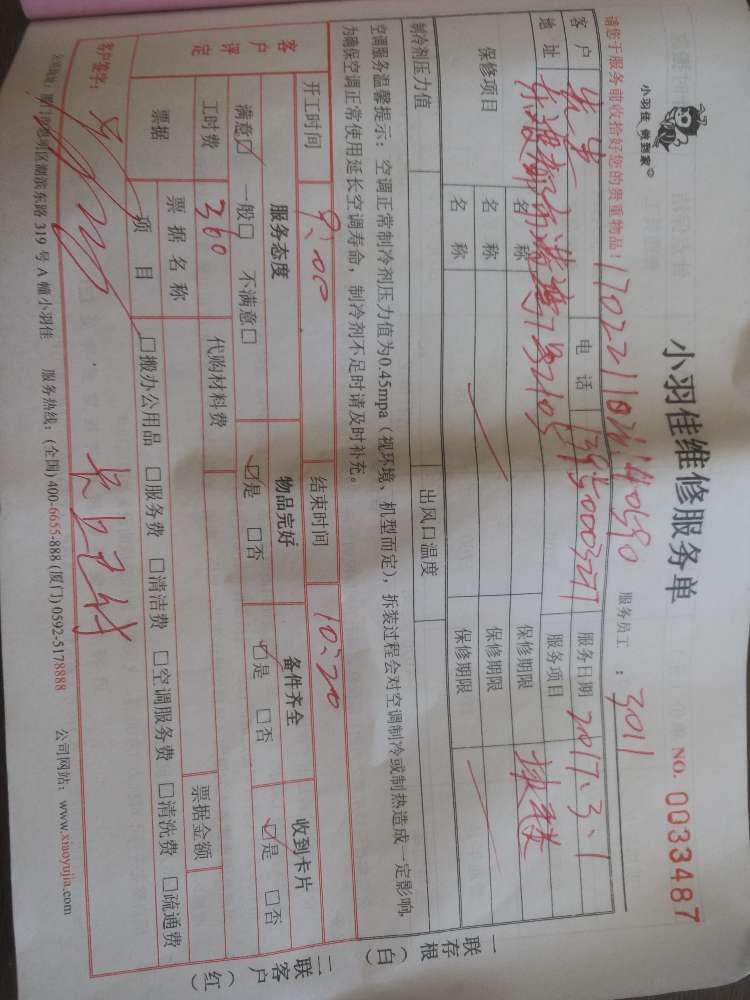 小羽佳 做到家
小羽佳维修服务单
NO. 0033487
请您于服务前收拾好您的贵重物品！
服务员工：3011
客户
电话
服务日期 2017.3.1
地址
服务项目
保修项目
名称
保修期限
名称
保修期限
名称
保修期限
制冷剂压力值
出风口温度
空调服务温馨提示：空调正常制冷剂压力值为0.45mpa（视环境、机型而定），拆装过程会对空调制冷或制热造成一定影响，
为确保空调正常使用延长空调寿命，制冷剂不足时请及时补充。
开工时间 9:00 结束时间 10:20
客户评定
服务态度 物品完好 备件齐全 收到卡片
满意☑ 一般□ 不满意□ ☑是 □否 ☑是 □否 ☑是 □否
工时费 360 代购材料费 票据金额
票据 票据名称
项目 □搬办公用品 □服务费 □清洁费 □空调服务费 □清洗费 □疏通费
客户签字：
湖滨东路 319 号 A 幢小羽佳 服务热线：(全国) 400-6655-888 (厦门) 0592-5178888 公司网站：www.xiaoyujia.com
一联存根（白）
二联客户（红）